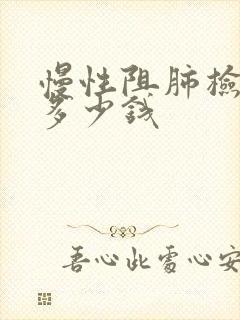 慢性阻肺檢
多少錢
吾心此處心安